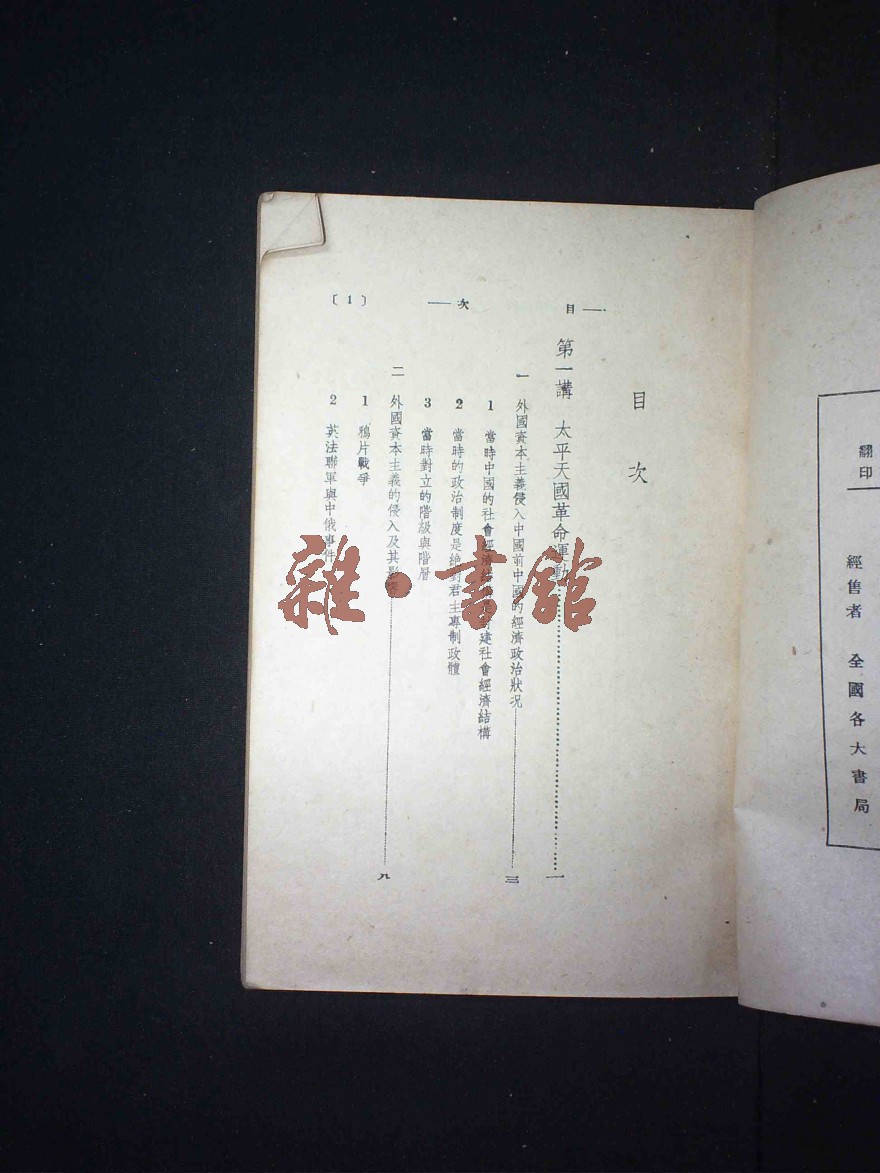 翻印
經售者　全國各大書局
目次 〔1〕
目次
第一講　太平天國革命運動……一
一　外國資本主義侵入中國前中國的經濟政治狀況……三
1　當時中國的社會經濟結構是封建社會經濟結構
2　當時的政治制度是絕對君主專制政體
3　當時對立的階級與階層
二　外國資本主義的侵入及其影響……九
1　鴉片戰爭
2　英法聯軍與中俄事件
雜·書館